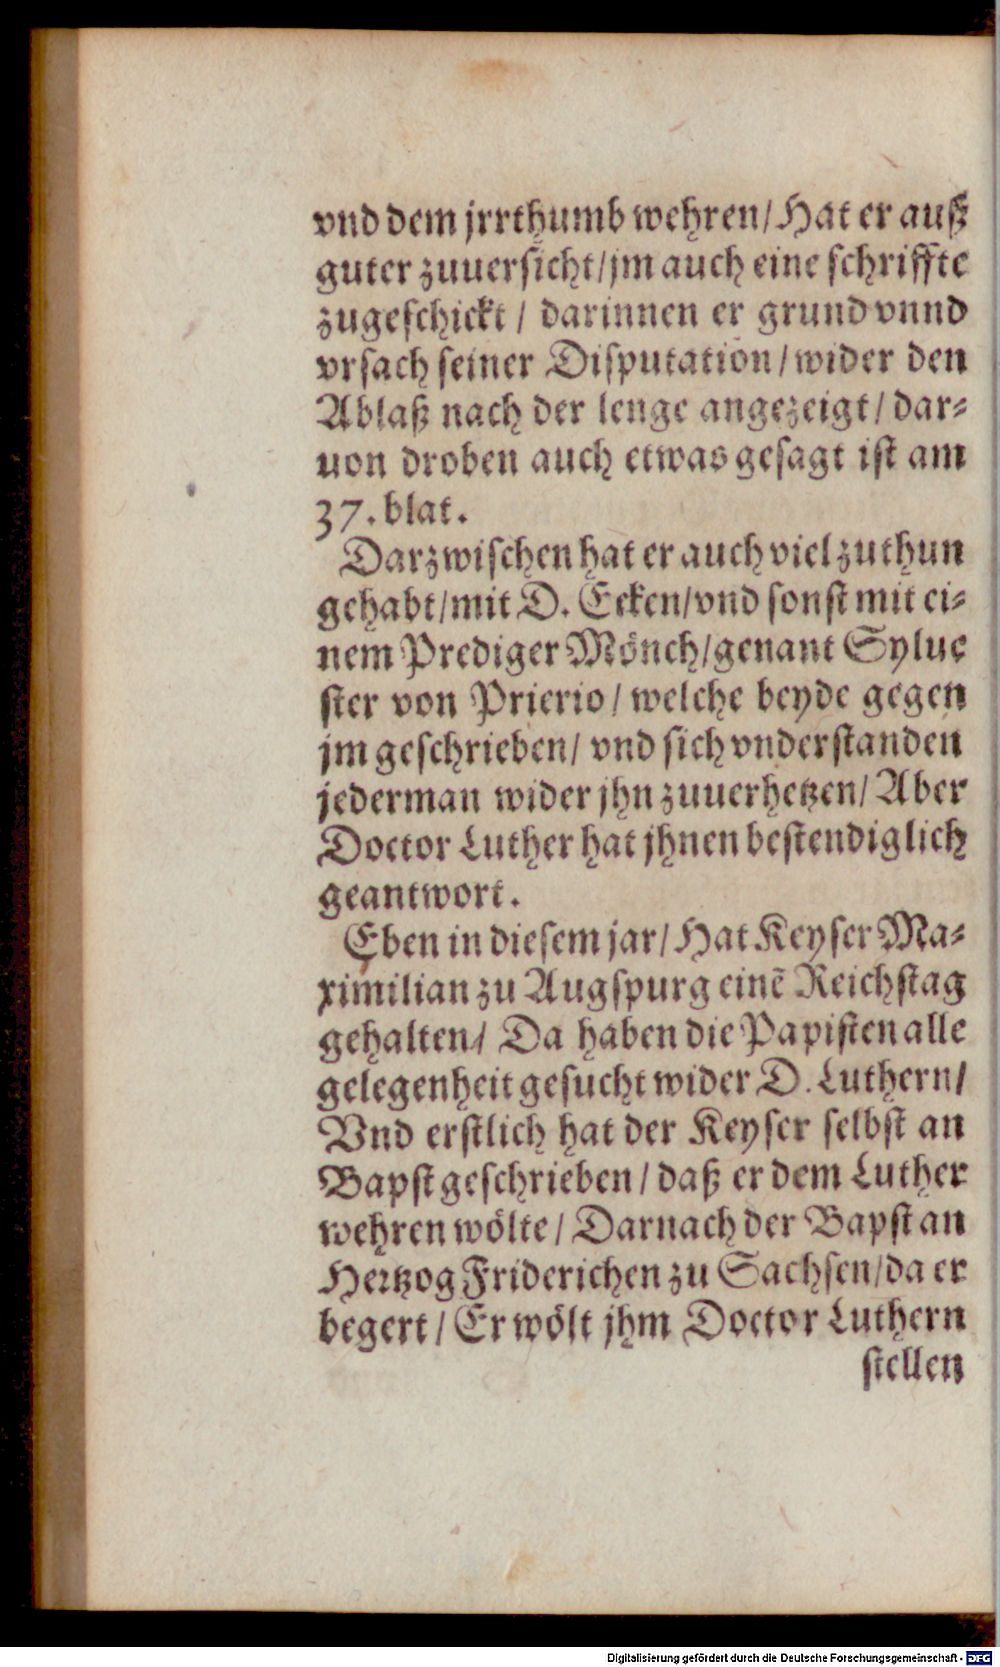 vnd dem jrrthumb wehren/ Hat er auß
guter zuuersicht/ jm auch eine schriffte
zugeschickt / darinnen er grund vnnd
vrsach seiner Disputation/ wider den
Ablaß nach der lenge angezeigt/ dar-
uon droben auch etwas gesagt ist am
37. blat.
Darzwischen hat er auch viel zuthun
gehabt/ mit D. Ecken/ vnd sonst mit ei-
nem Prediger Mönch/ genant Sylue
ster von Prierio/ welche beyde gegen
jm geschrieben/ vnd sich vnderstanden
jederman wider jhn zuuerhetzen/ Aber
Doctor Luther hat jhnen bestendiglich
geantwort.
Eben in diesem jar/ Hat Keyser Ma-
ximilian zu Augspurg einē Reichstag
gehalten/ Da haben die Papisten alle
gelegenheit gesucht wider D. Luthern/
Vnd erstlich hat der Keyser selbst an
Bapst geschrieben/ daß er dem Luther
wehren wölte/ Darnach der Bapst an
Hertzog Friderichen zu Sachsen/ da er
begert/ Er wölt jhm Doctor Luthern
stellen
Digitalisierung gefördert durch die Deutsche Forschungsgemeinschaft - DFG